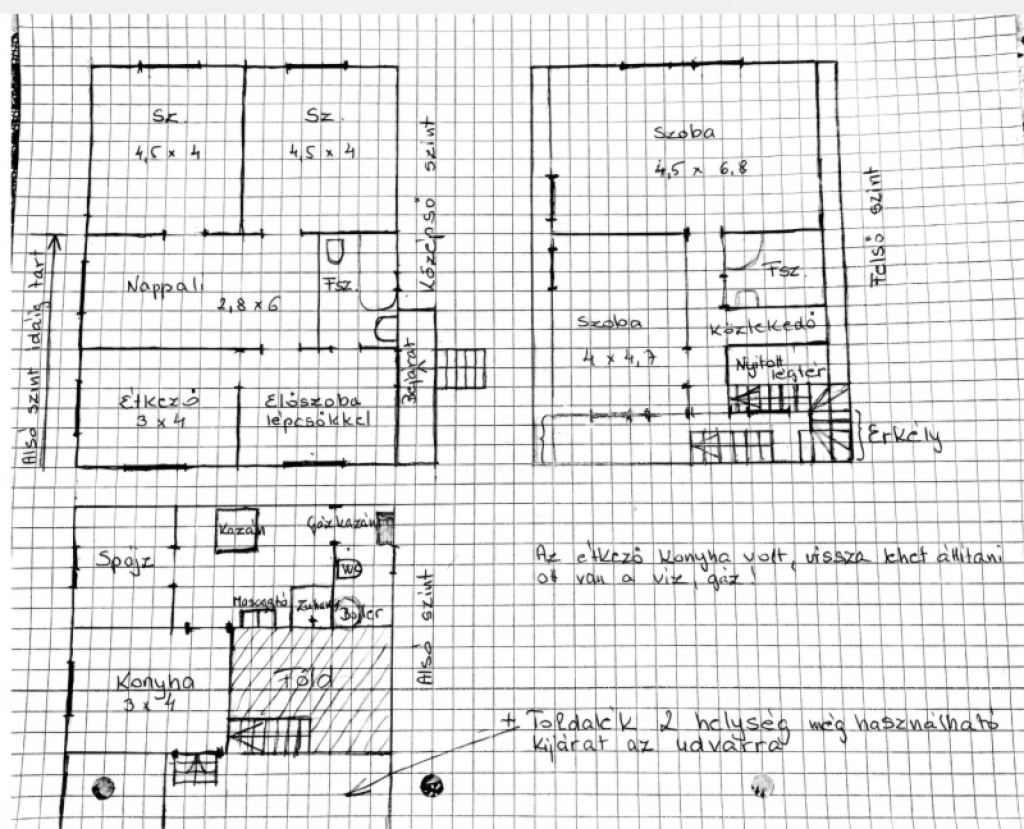 Sz.
4,5 x 4
Sz.
4,5 x 4
Középső szint
Alsó szint idáig tart
Nappali
2,8 x 6
Fsz.
Étkező
3 x 4
Előszoba
lépcsőkkel
Bejárat
Szoba
4,5 x 6.8
Felső szint
Fsz.
Szoba
4 x 4,7
Közlekedő
Nyitott
légtér
Erkély
Spájz
Kazán
Gázkazán
WC
Mosogató
Zuhany
Bojler
Alsó szint
Konyha
3 x 4
Föld
Az étkező konyha volt, vissza lehet állítani
ott van a víz, gáz!
+ Toldalék 2 helység még használható
kijárat az udvarra